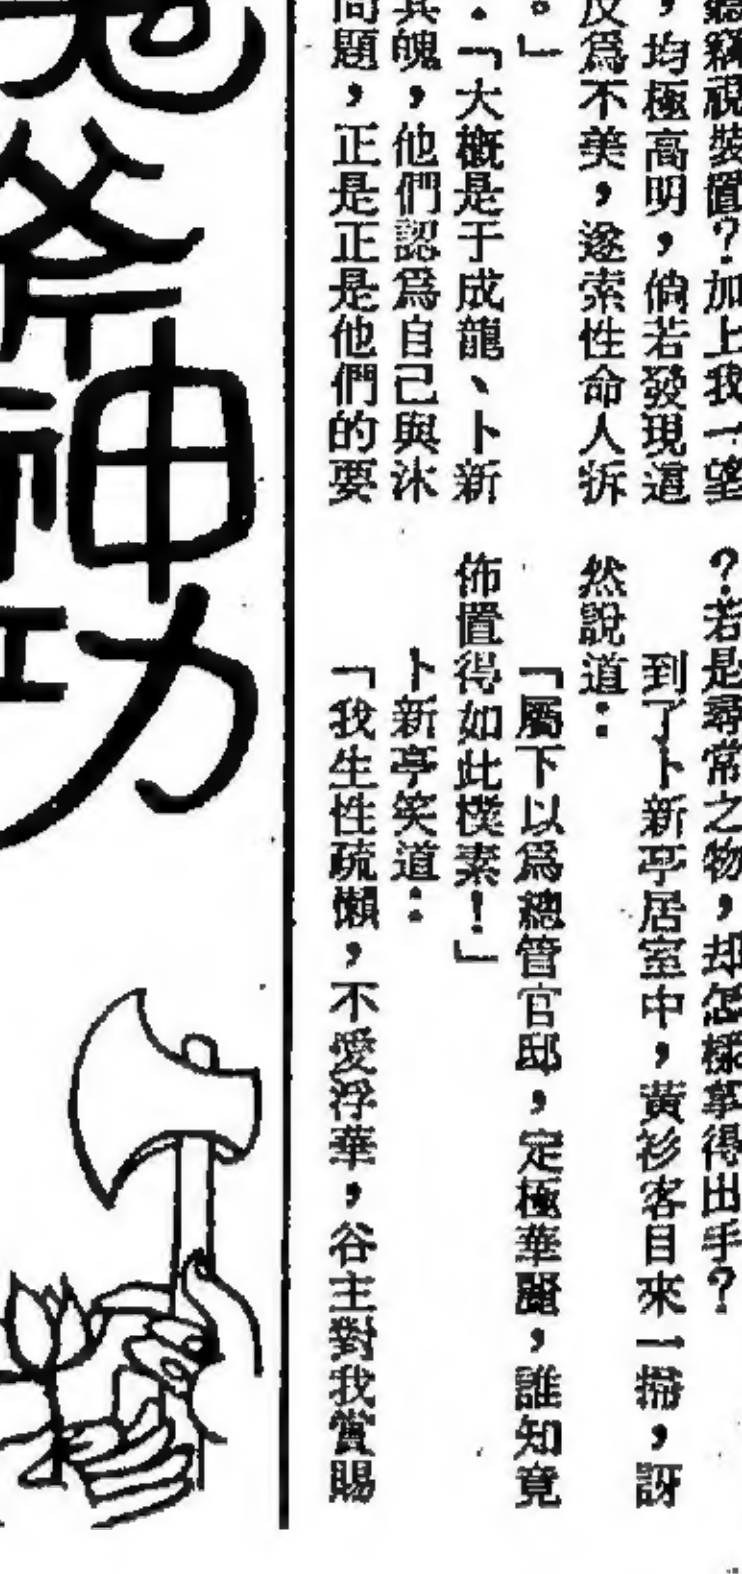 視裝置？加上我一望
，均極高明，倘若發現這
反爲不美，遂索性命人拆
。」
：「大概是于成龍、卜新
其魄，他們認爲自己與沐
問題，正是正是他們的要
？若是尋常之物，却怎樣拿得出手？
到了卜新亭居室中，黃衫客目來一掃，訝
然說道：
「屬下以爲總管官邸，定極華麗，誰知竟
佈置得如此樸素！」
卜新亭笑道：
「我生性疏懶，不愛浮華，谷主對我賞賜
鬼斧神功